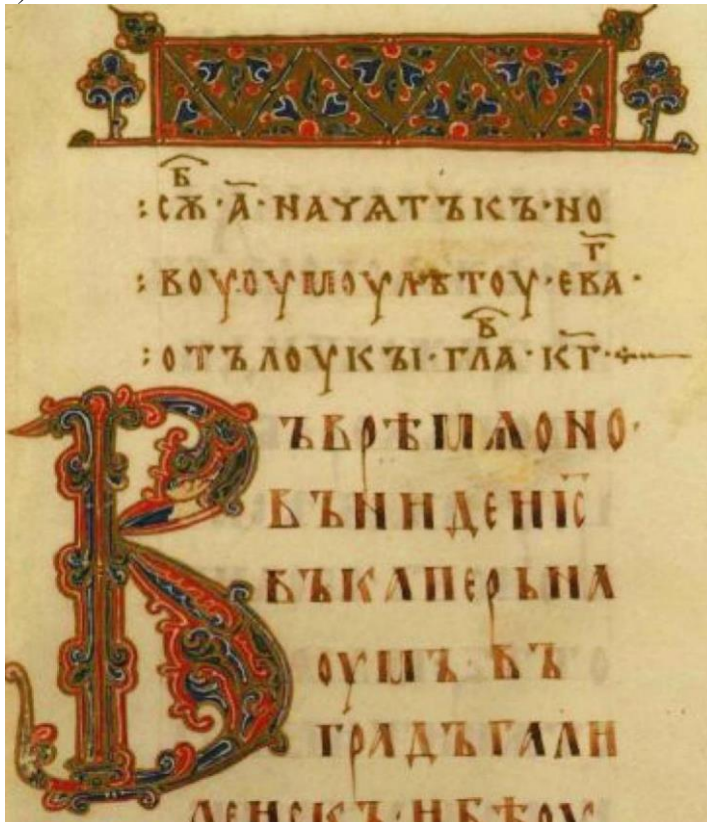 :сѫⷠ҇·а҃·начѧтъкъ·но
:воуоумоулѣтоу·еваⷢ҇·
:отълоукꙑ·глаⷡ҇·к҃г·
Въврѣмѧоно·
вънидеи҃с
въкаперьна
оумъ въ
градъгали
леискъ·ибѣоу